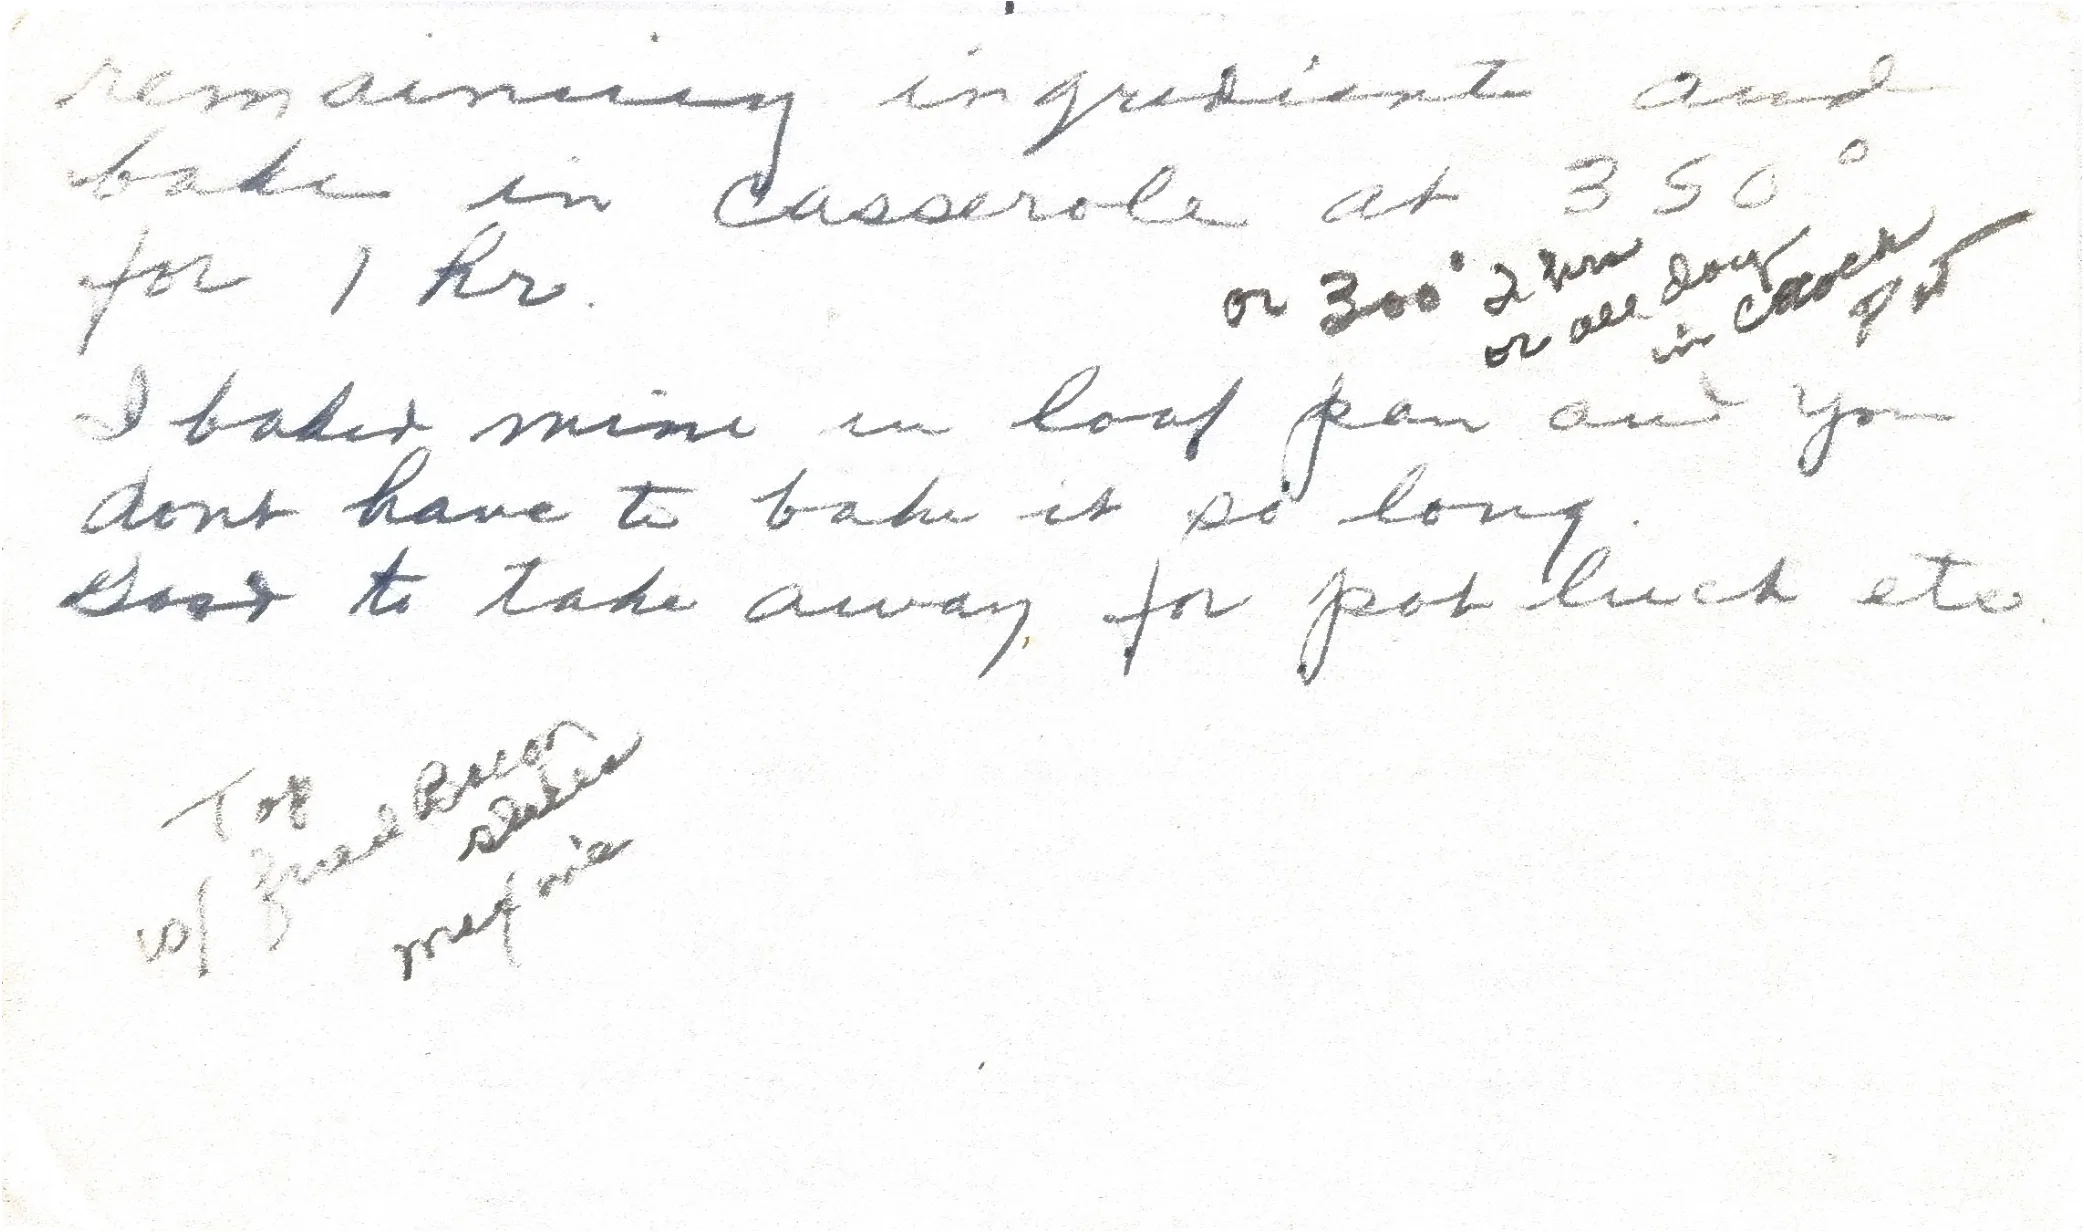 remaining ingredient and
bake in casserole at 350°
for 1 hr.
or 300° 2 hrs
or all day
in crock
pot
I baked mine in loaf pan and you
dont have to bake it so long.
Good to take away for pot luck etc.
Top
w/ fried Bacon
slices